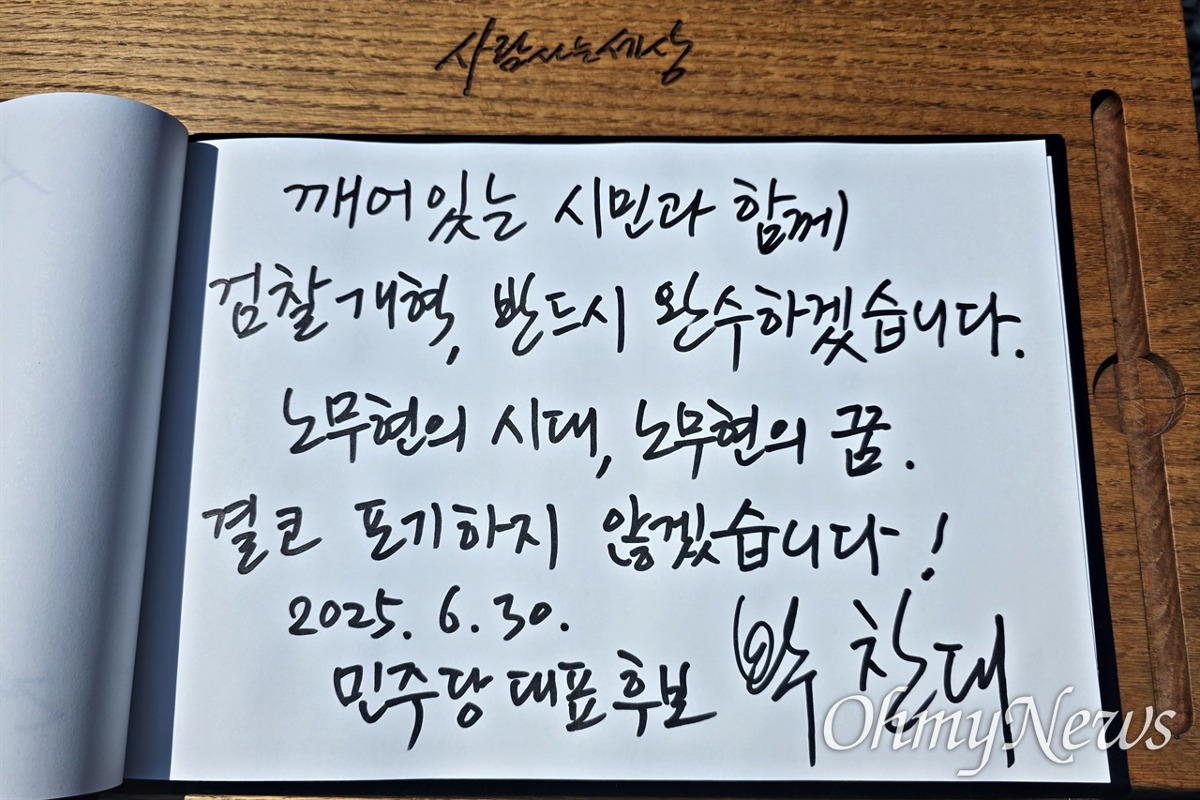 사람사는세상
깨어있는 시민과 함께
검찰개혁, 반드시 완수하겠습니다.
노무현의 시대, 노무현의 꿈.
결코 포기하지 않겠습니다!
2025. 6. 30.
민주당 대표후보 박찬대
OhmyNews